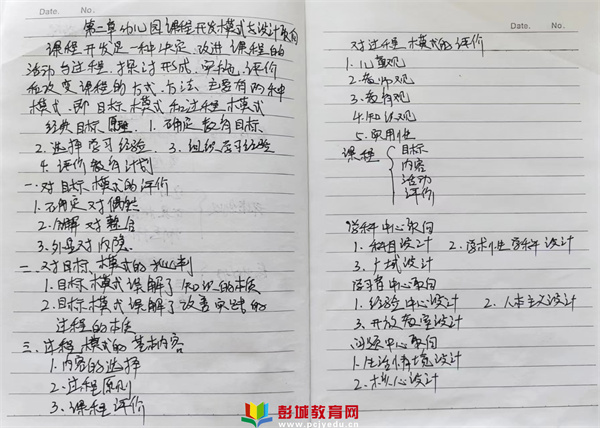 Date. No.
第二章幼儿园课程开发模式与设计取向
课程开发是一种决定、改进课程的
活动与过程,探讨形成、实施、评价
和改变课程的方式、方法、主要有两种
模式,即目标模式和过程模式
经典目标原理 1.确定教育目标
2.选择学习经验 3.组织学习经验
4.评价教育计划
一.对目标模式的评价
1.确定对偶然
2.分解对整合
3.外显对内隐
二.对目标模式的批判
1.目标模式误解了知识的本质
2.目标模式误解了改善实践的
过程的本质
三.过程模式的基本内容
1.内容的选择
2.过程原则
3.课程评价
Date. No.
对过程模式的评价
1.儿童观
2.教师观
3.教育观
4.知识观
5.实用性
课程
目标
内容
活动
评价
学科中心取向
1.科目设计 2.学术性学科设计
3.广域设计
学习者中心取向
1.经验中心设计 2.人本主义设计
3.开放教室设计
问题中心取向
1.生活情境设计
2.核心设计
彭城教育网
www.pcjyedu.cn